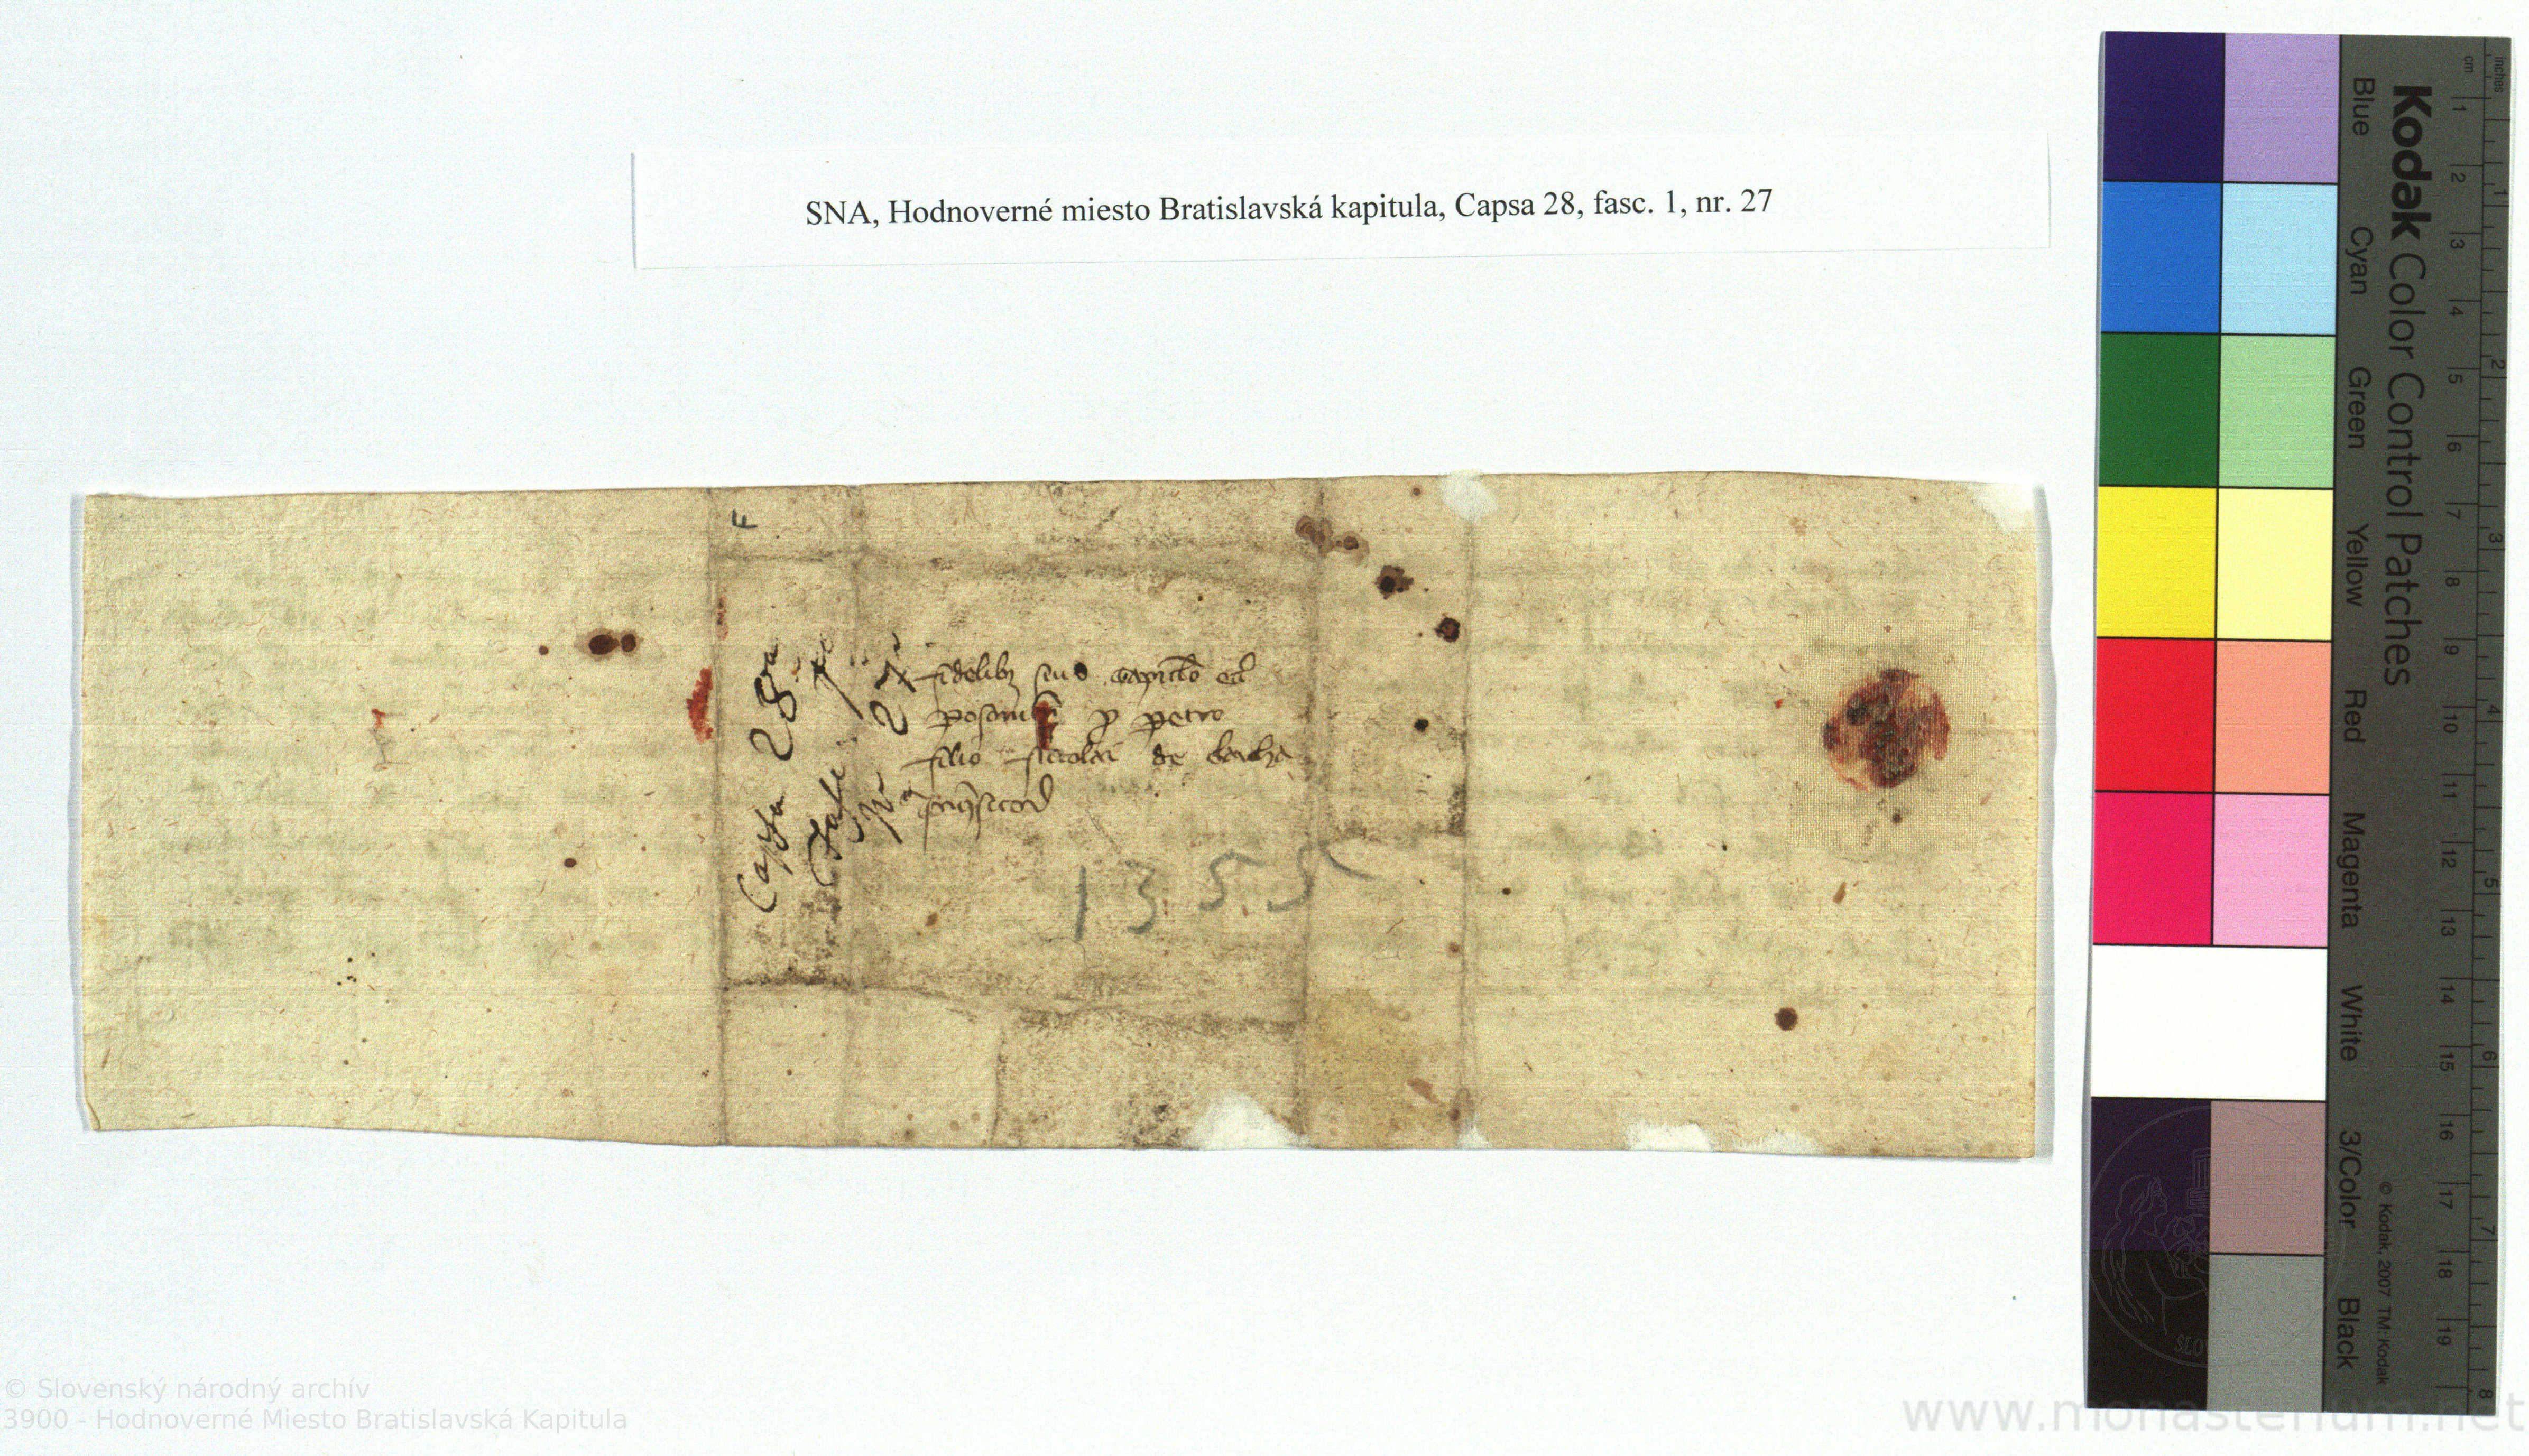 SNA, Hodnoverné miesto Bratislavská kapitula, Capsa 28, fasc. 1, nr. 27
F
Capsa 28a
27
fidelibz suis capitlo
posonien p petro
filio Nicolai de
1355
Kodak Color Control Patches
Blue Cyan Green Yellow Red Magenta White 3/Color Black
© Kodak, 2007 TM: Kodak
inches 1 2 3 4 5 6 7 8
cm 1 2 3 4 5 6 7 8 9 10 11 12 13 14 15 16 17 18 19
© Slovenský národný archív
3900 - Hodnoverné Miesto Bratislavská Kapitula
www.monasterium.net